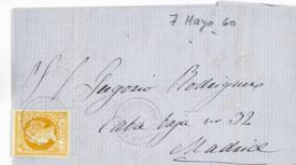 7 Mayo 60
Gregorio Rodriguez
Caba baja nº 32
Madrid